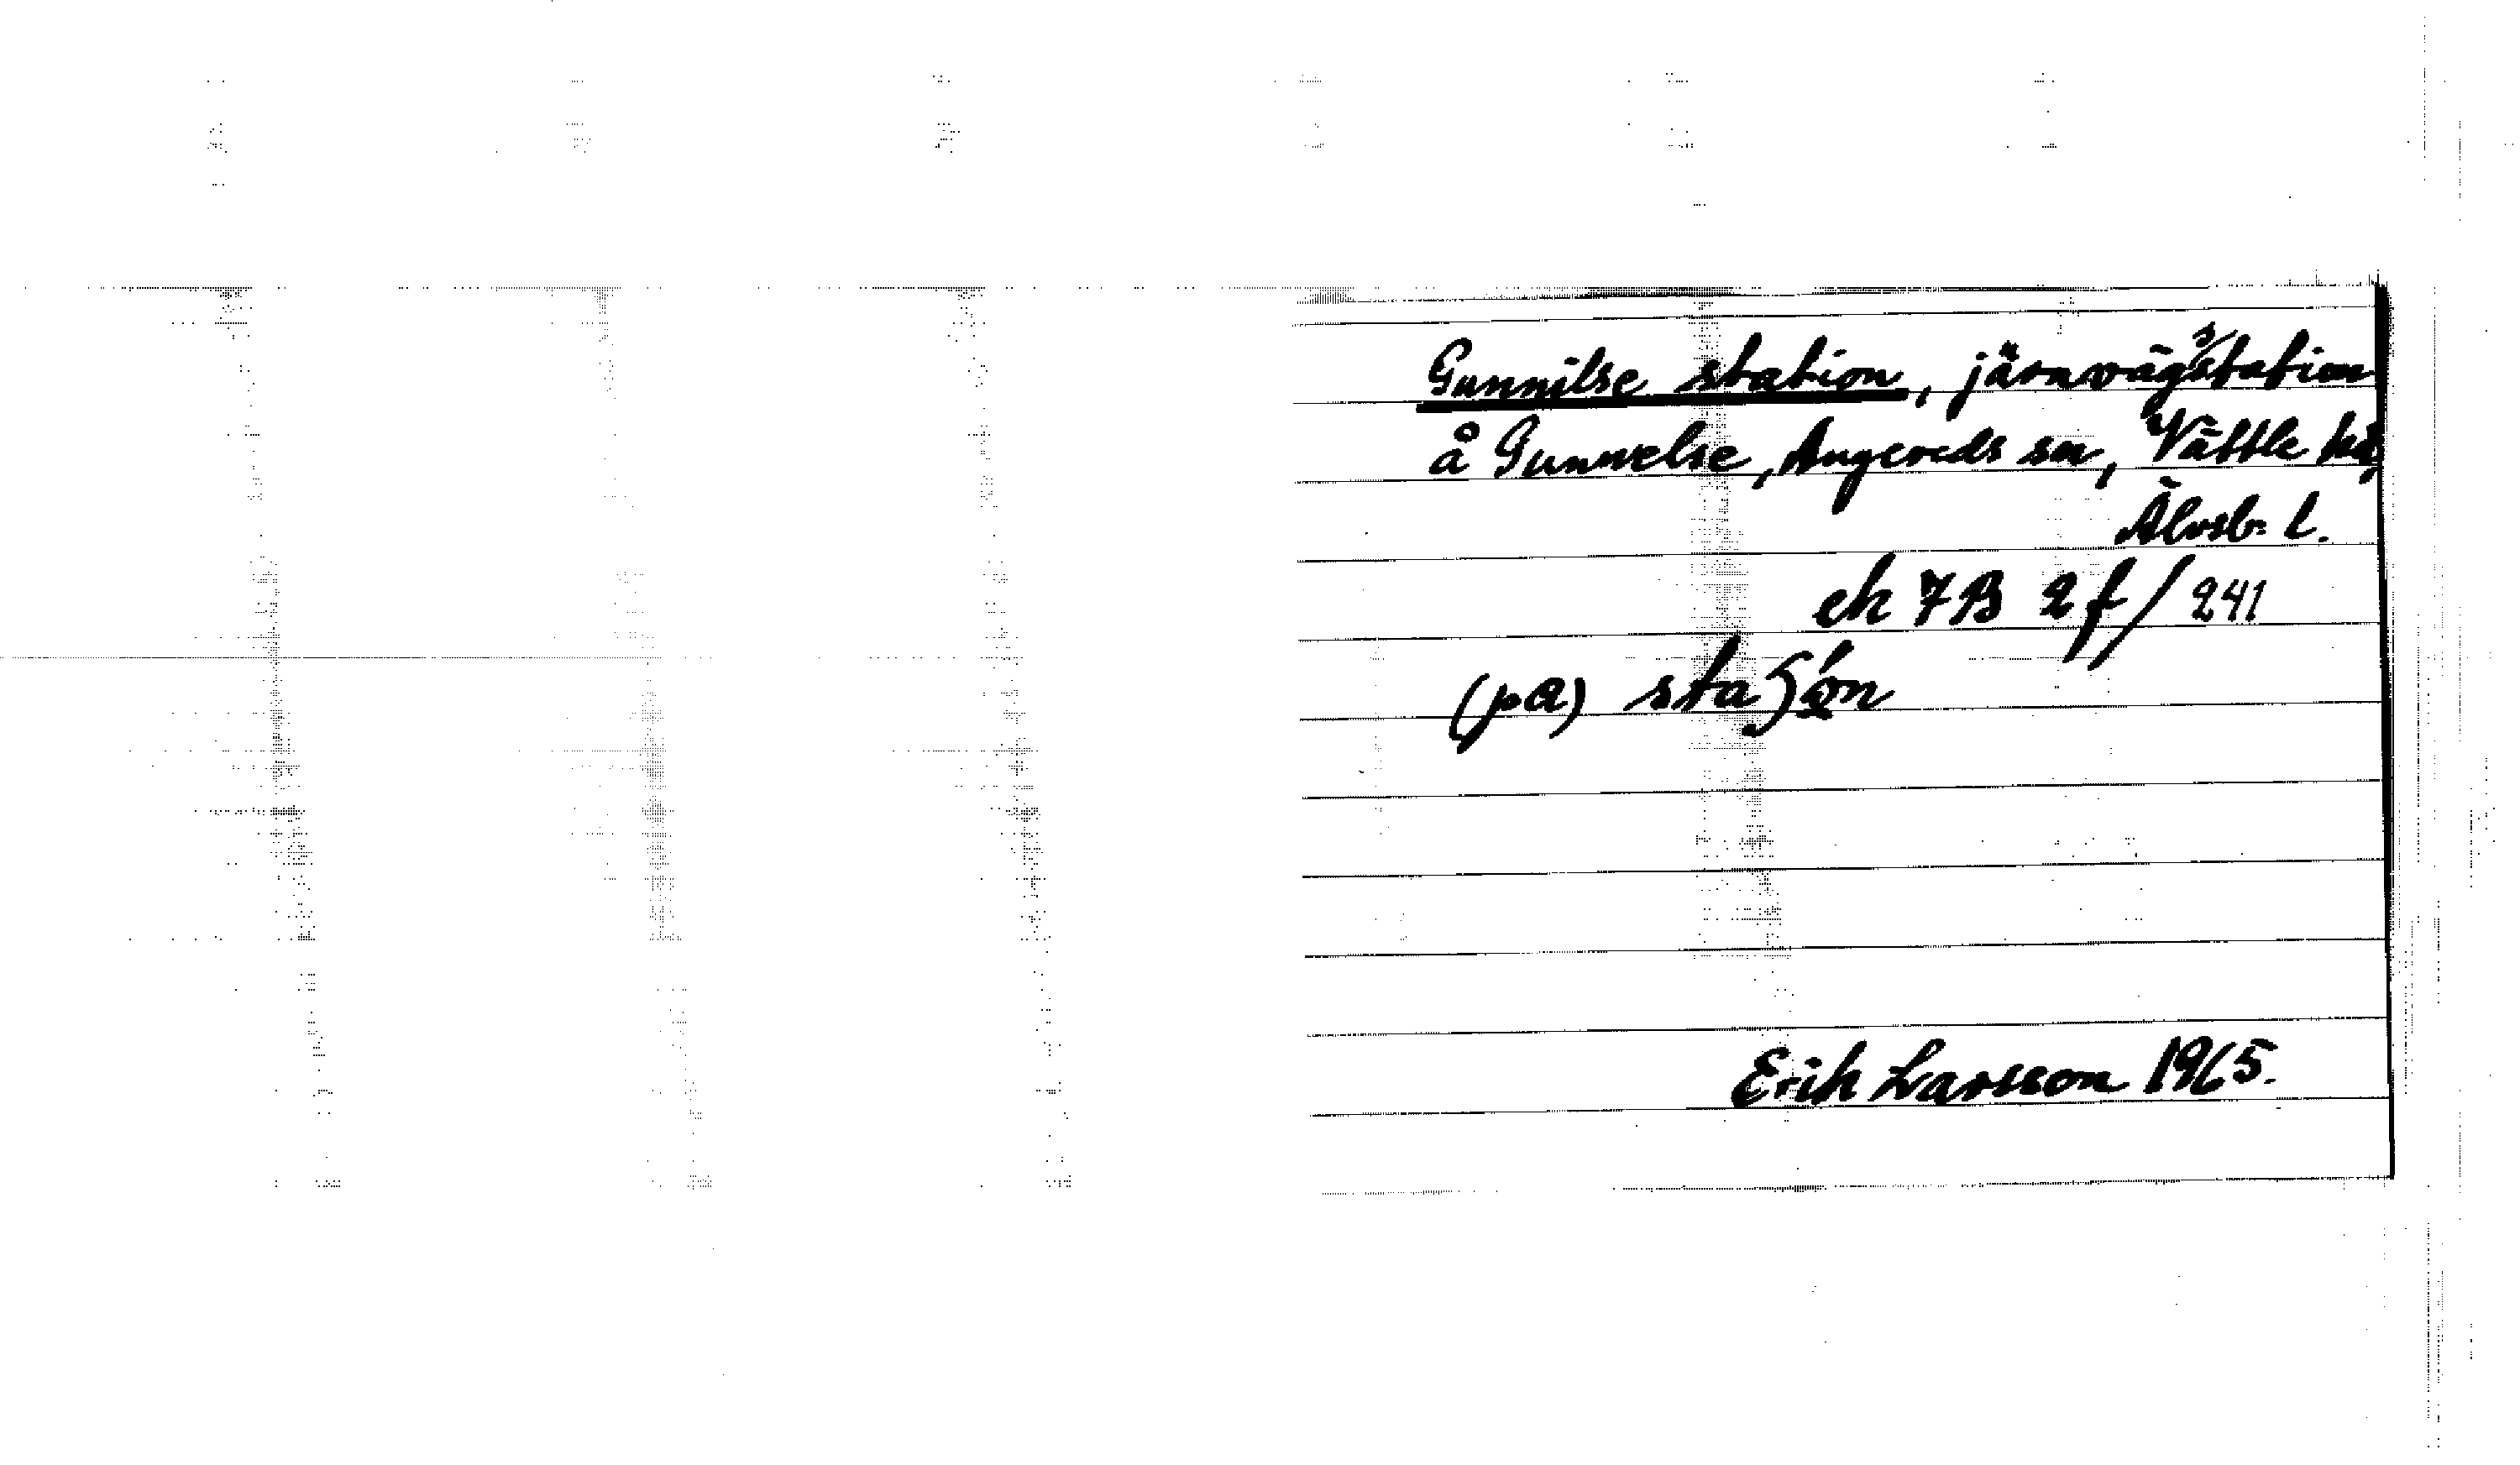 Gunnilse station, järnvägsstation
å Gunnelse, Angereds sn, Vättle hd,
Älvsb. l.
ek 7B 2f/241
(pa) staʃón
Erik Larsson 1965.